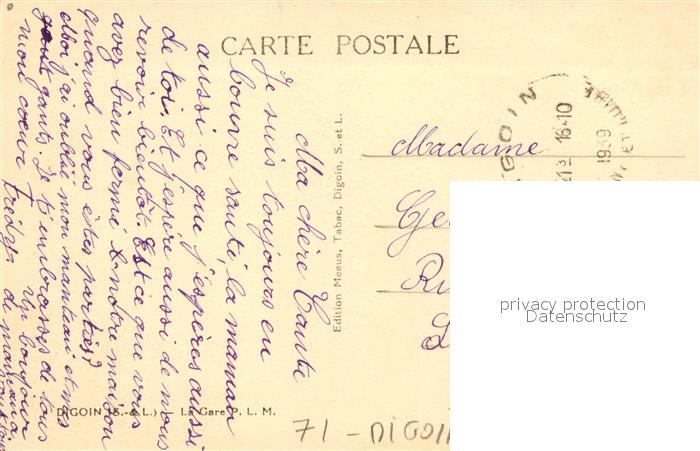 CARTE POSTALE
Ma chère Tante
Je suis toujours en
bonnre santé, la maman
aussi ce que j'espères aussi
de toi. Et j'espère aussi de nous
revoir bientôt. Est ce que vous
avez bien fermé & notre maison
quand vous êtes parties?
Moi j'ai oublié mon manteau et mes
gants. Je t'embrasses de tous
mon coeur Fredy.
Un bonjour
de maman à
Edition Meeus, Tabac, Digoin, S. et L.
DIGOIN (S.-&-L.) — La Gare P. L. M.
71 - DIGOIN
Madame
Ge
Ru
DIGOIN
16-10
1939
privacy protection
Datenschutz